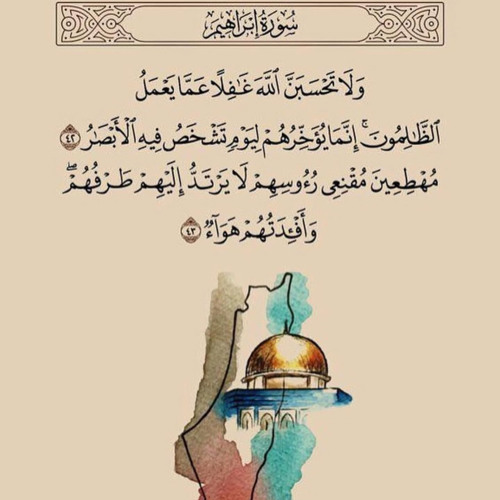 سُورَةُ إِبْرَاهِيمَ
وَلَا تَحْسَبَنَّ ٱللَّهَ غَٰفِلًا عَمَّا يَعْمَلُ
ٱلظَّٰلِمُونَ ۚ إِنَّمَا يُؤَخِّرُهُمْ لِيَوْمٍ تَشْخَصُ فِيهِ ٱلْأَبْصَٰرُ ٤٢
مُهْطِعِينَ مُقْنِعِى رُءُوسِهِمْ لَا يَرْتَدُّ إِلَيْهِمْ طَرْفُهُمْ ۖ
وَأَفْـِٔدَتُهُمْ هَوَآءٌ ٤٣